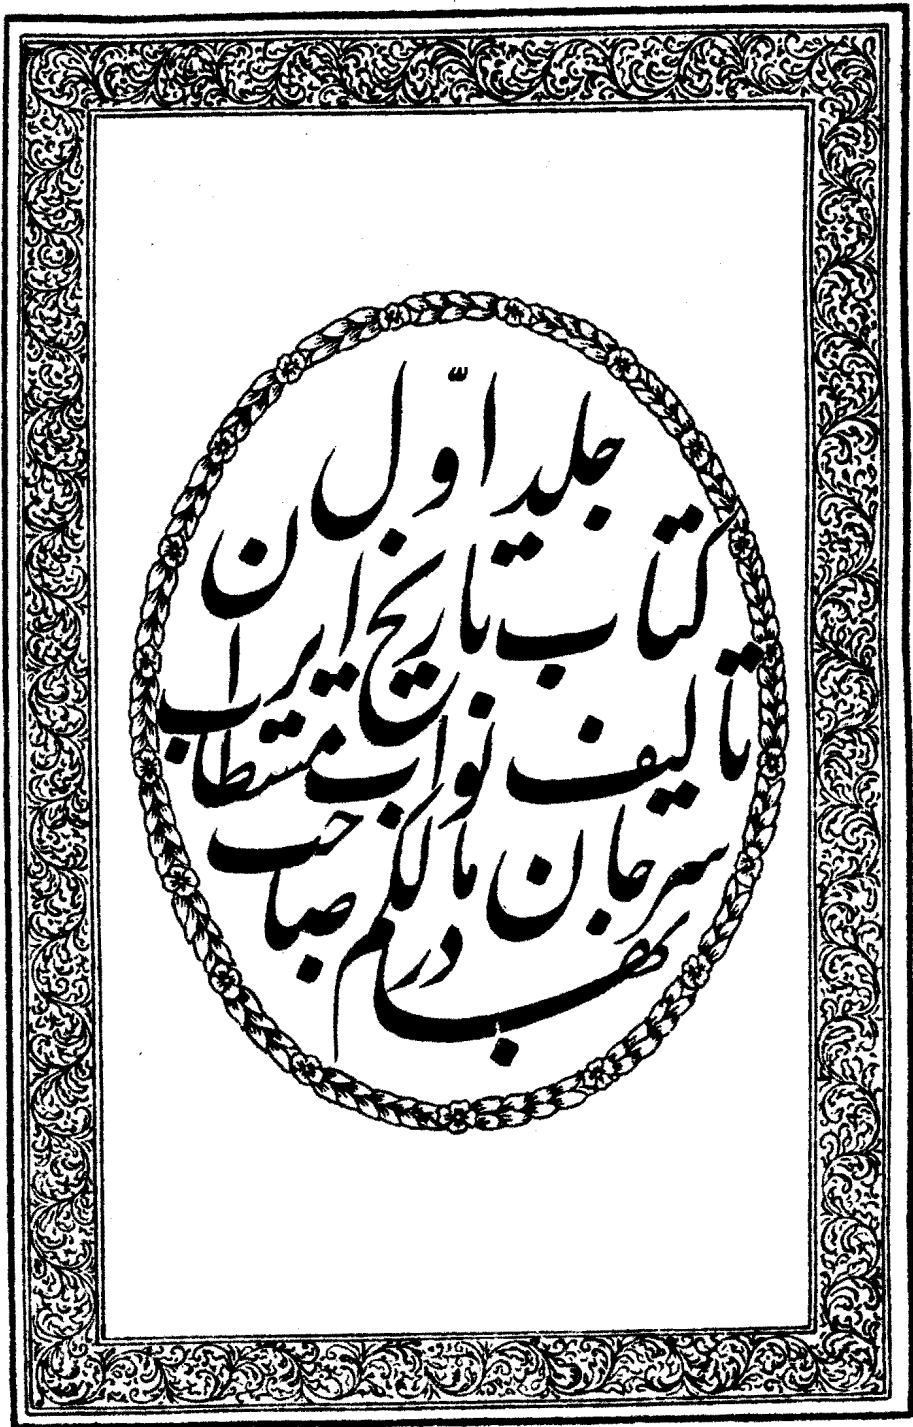 جلد اوّل
کتاب تاریخ ایران
تالیف نواب مستطاب
سرجان مالکم صاحب
بهادر